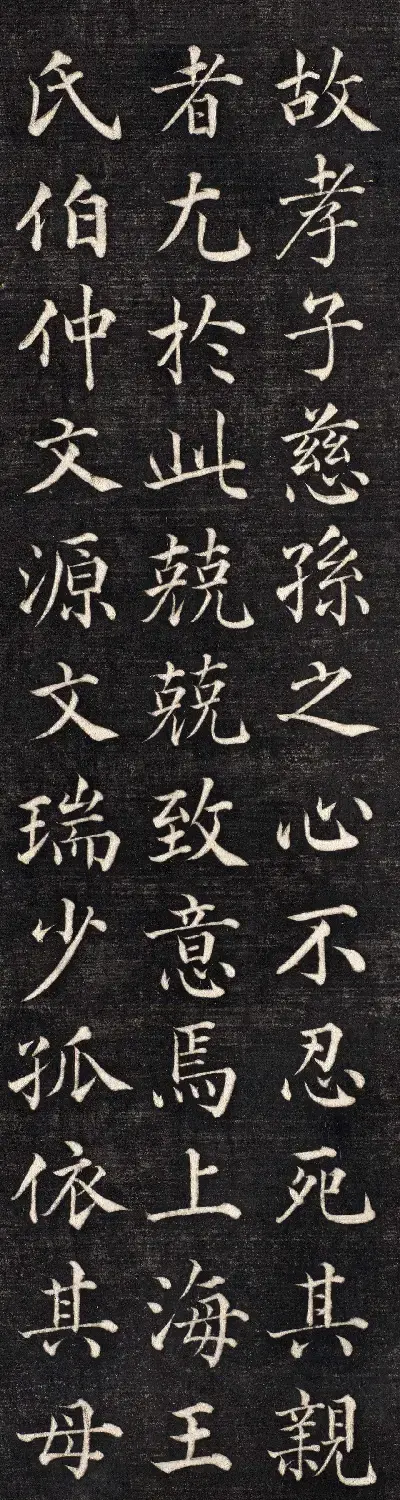 故孝子慈孫之心不忍死其親
者尤於此兢兢致意焉上海王
氏伯仲文源文瑞少孤依其母